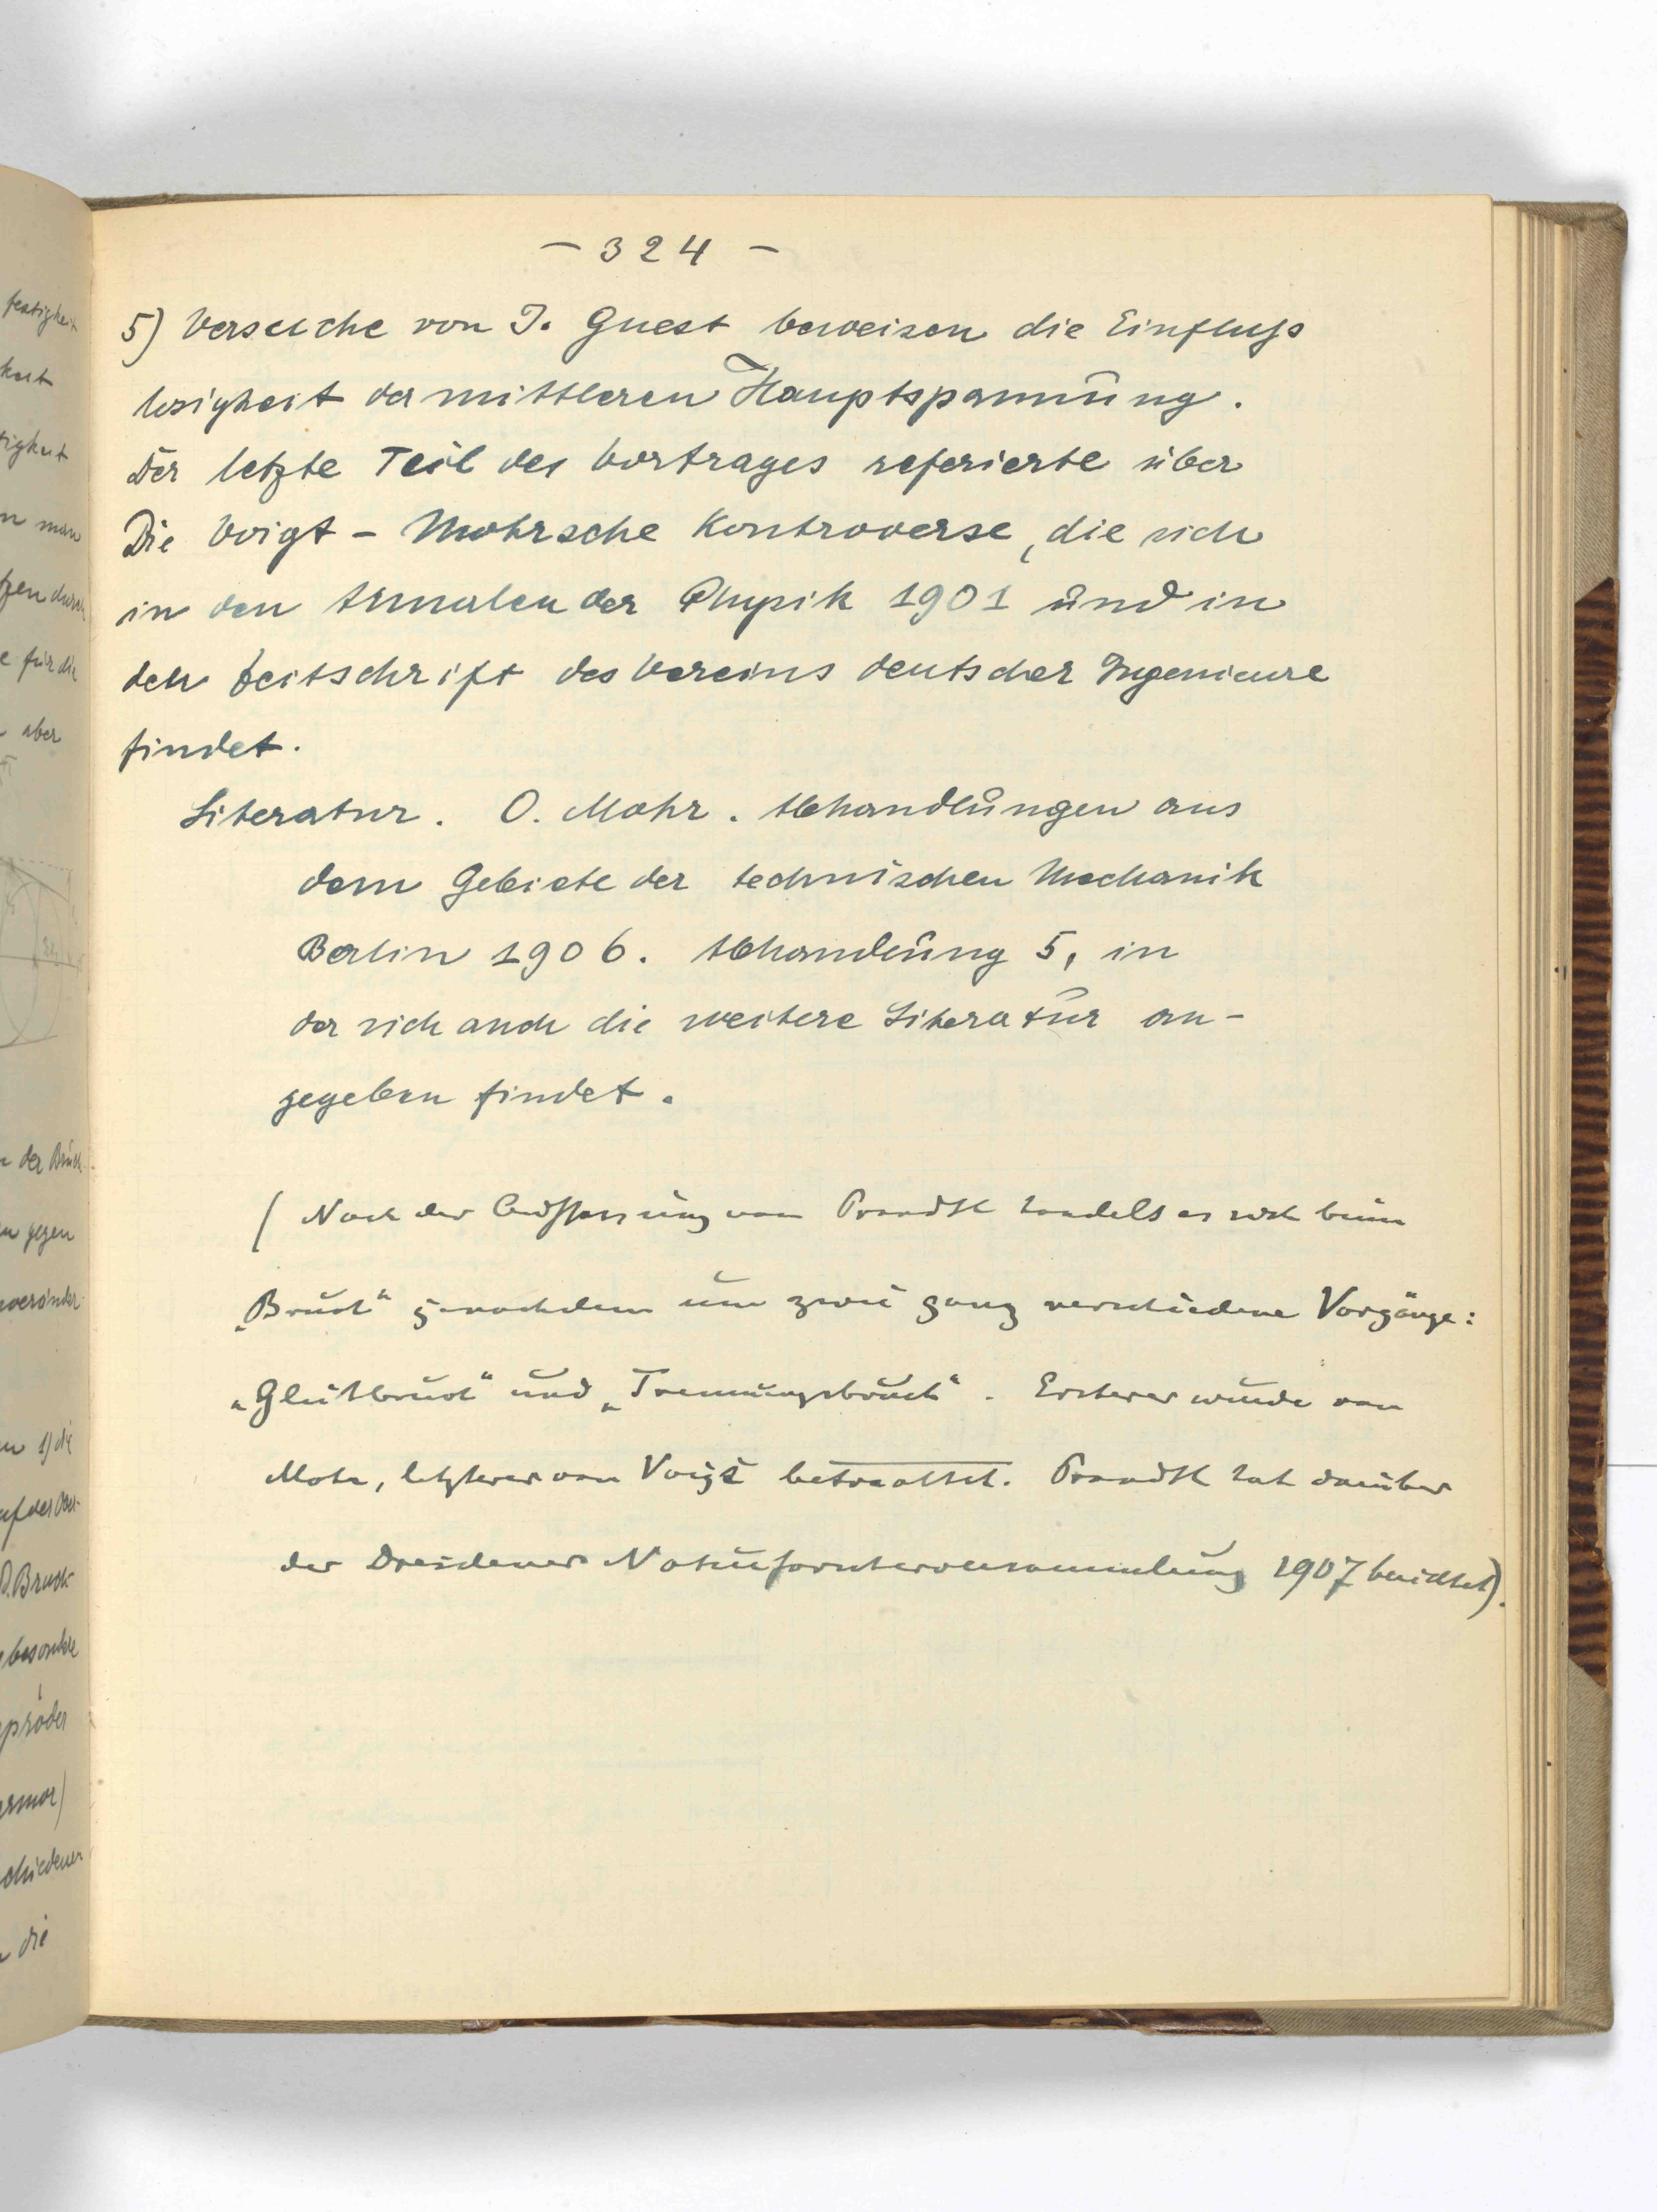 – 324 –
5) Versuche von J. Guest beweisen die Einfluss
losigkeit der mittleren Hauptspannung.
Der letzte Teil des Vortrages referierte über
Die Voigt – Mohrsche Kontroverse, die sich
in den Annalen der Physik 1901 und in
der Zeitschrift des Vereins deutscher Ingenieure
findet.
Literatur. O. Mohr. Abhandlungen aus
dem Gebiete der technischen Mechanik
Berlin 1906. Abhandlung 5, in
der sich auch die weitere Literatur an-
gegeben findet.
( Nach der Auffassung von Prandtl handelt es sich beim
„Bruch“ jenachdem um zwei ganz verschiedene Vorgänge:
„Gleitbruch“ und „Trennungsbruch“. Ersterer wurde von
Mohr, letzterer von Voigt betrachtet. Prandtl hat darüber
der Dresdener Naturforscherversammlung 1907 berichtet).
festigkeit
keit
tigkeit
n man
tzen durch
e für die
aber
der Bruch
gegen
1) die
auf der Ober-
D. Bruch
besondere
spröder
die